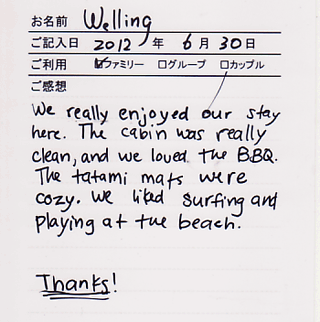 お名前 Welling
ご記入日 2012 年 6 月 30 日
ご利用 ☑ファミリー □グループ □カップル
ご感想
We really enjoyed our stay
here. The cabin was really
clean, and we loved the BBQ.
The tatami mats were
cozy. We liked surfing and
playing at the beach.
Thanks!